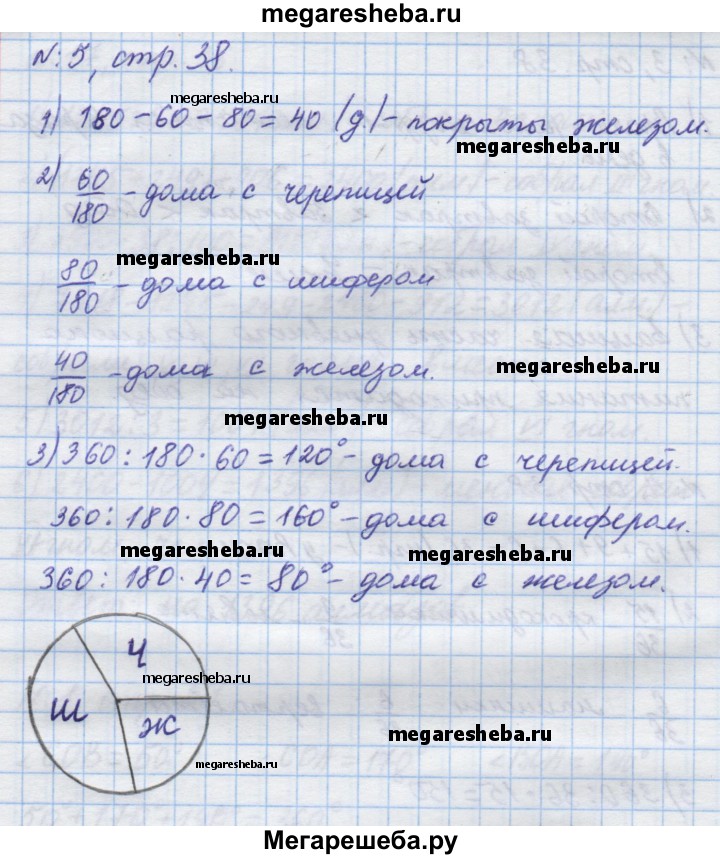 megaresheba.ru
№ 5, стр. 38.
megaresheba.ru
1) 180 - 60 - 80 = 40 (д.) - покрыты железом.
megaresheba.ru
2) 60/180 - дома с черепицей
megaresheba.ru
80/180 - дома с шифером
40/180 - дома с железом.
megaresheba.ru
megaresheba.ru
3) 360 : 180 · 60 = 120° - дома с черепицей.
360 : 180 · 80 = 160° - дома с шифером.
megaresheba.ru
megaresheba.ru
360 : 180 · 40 = 80° - дома с железом.
Ч
megaresheba.ru
Ш
Ж
megaresheba.ru
megaresheba.ru
Мегарешеба.ру